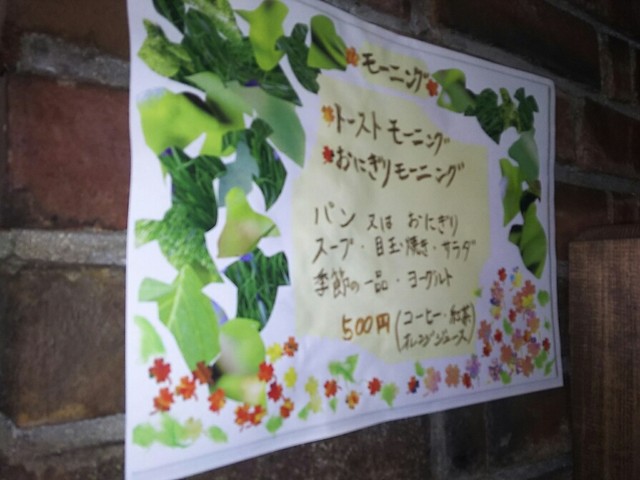 モーニング
トーストモーニング
おにぎりモーニング
パン 又は おにぎり
スープ・目玉焼き・サラダ
季節の一品・ヨーグルト
500円 (コーヒー・紅茶
オレンジジュース)